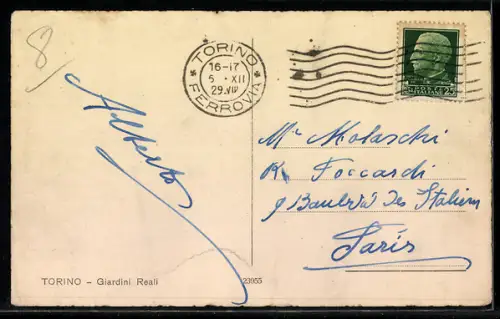 8
TORINO
16-17
5 · XII
29.VII
FERROVIA
Alberto
Mr Molaschi
R. Foccardi
9 Boulevd des Italiens
Paris
TORINO – Giardini Reali
23055